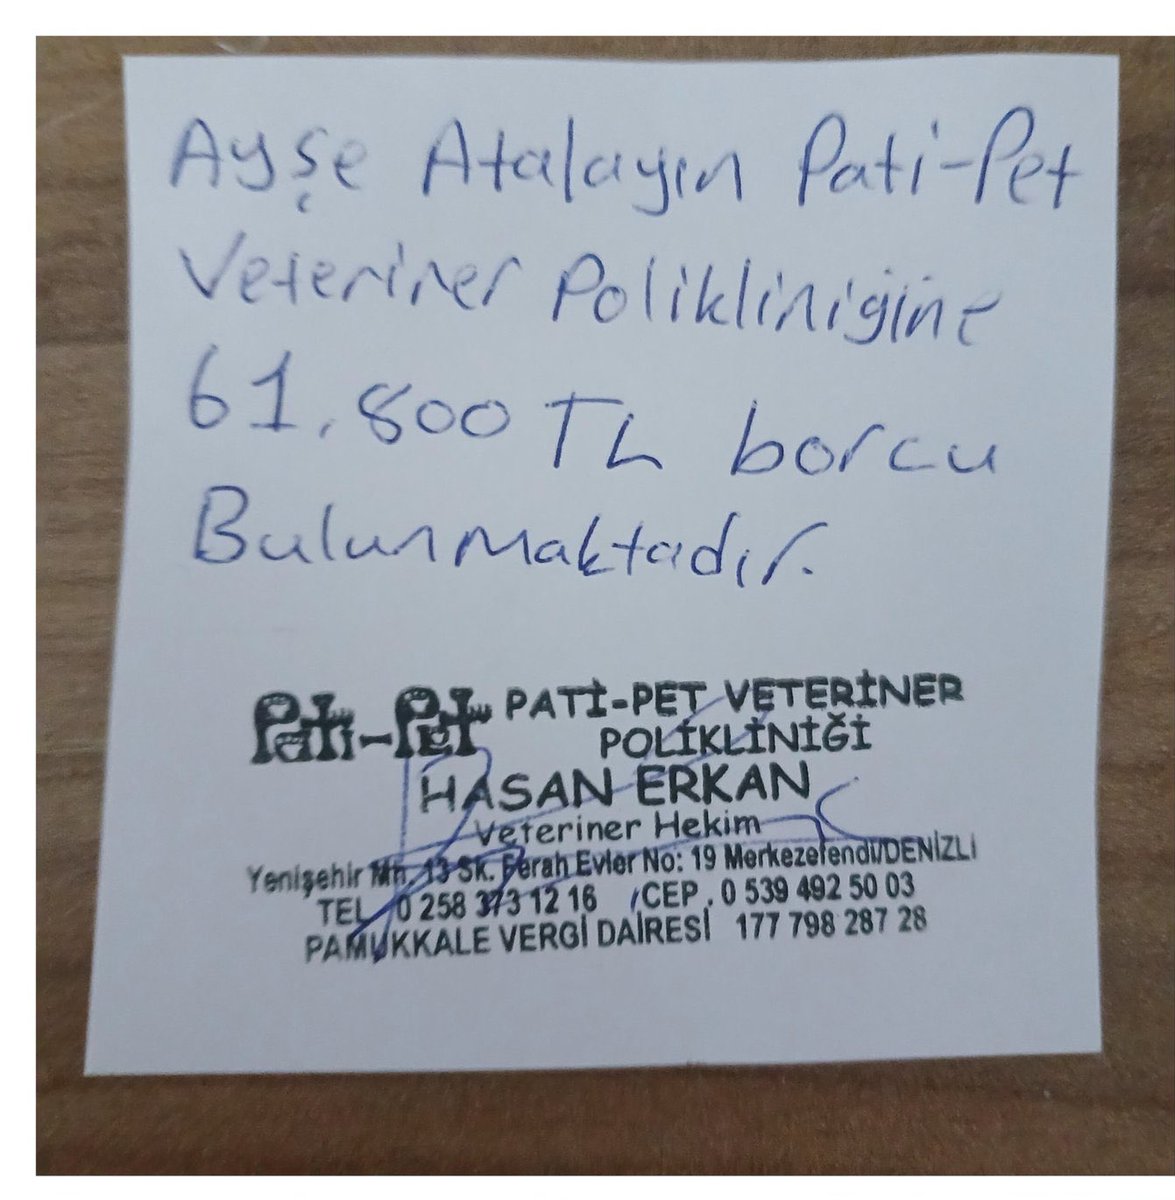 Ayşe Atalayın Pati-Pet
Veteriner Polikliniğine
61.800 TL borcu
Bulunmaktadır.
Pati-Pet PATİ-PET VETERİNER
POLİKLİNİĞİ
HASAN ERKAN
Veteriner Hekim
Yenişehir Mh. 13 Sk. Ferah Evler No: 19 Merkezefendi/DENİZLİ
TEL 0 258 373 12 16 CEP . 0 539 492 50 03
PAMUKKALE VERGİ DAİRESİ 177 798 287 28